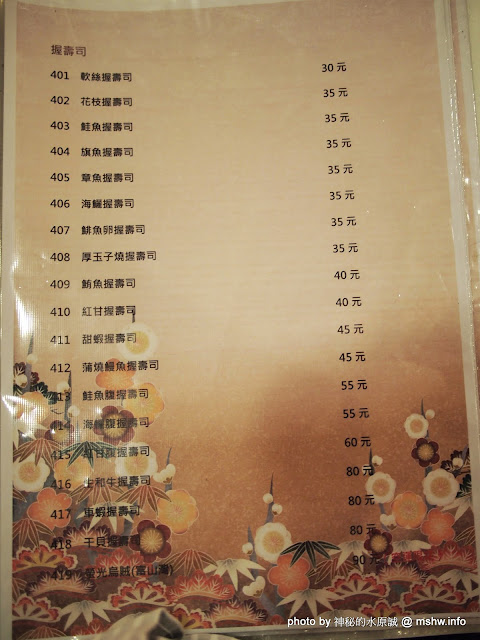 握壽司
401 軟絲握壽司 30 元
402 花枝握壽司 35 元
403 鮭魚握壽司 35 元
404 旗魚握壽司 35 元
405 章魚握壽司 35 元
406 海鱺握壽司 35 元
407 鯡魚卵握壽司 35 元
408 厚玉子燒握壽司 35 元
409 鮪魚握壽司 40 元
410 紅甘握壽司 40 元
411 甜蝦握壽司 45 元
412 蒲燒鰻魚握壽司 45 元
413 鮭魚腹握壽司 55 元
414 海鱺腹握壽司 55 元
415 紅甘腹握壽司 60 元
416 上和牛握壽司 80 元
417 車蝦握壽司 80 元
418 干貝握壽司 80 元
419 螢光烏賊(富山灣) 90 元
photo by 神秘的水原誠 @ mshw.info